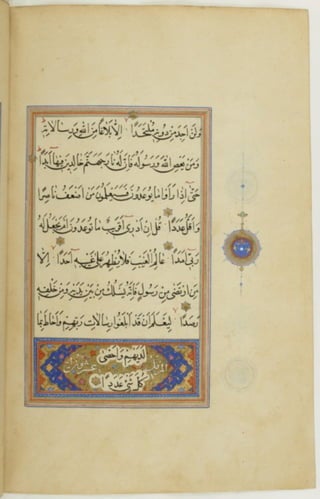 وَلَنْ اَجِدَ مِنْ دُونِهِ مُلْتَحَدًا اِلَّا بَلَاغًا مِنَ اللهِ وَرِسَالَاتِهِ
وَمَنْ يَعْصِ اللهَ وَرَسُولَهُ فَاِنَّ لَهُ نَارَ جَهَنَّمَ خَالِدِينَ فِيهَا اَبَدًا
حَتَّى اِذَا رَاَوْا مَا يُوعَدُونَ فَسَيَعْلَمُونَ مَنْ اَضْعَفُ نَاصِرًا
وَاَقَلُّ عَدَدًا قُلْ اِنْ اَدْرِى اَقَرِيبٌ مَا تُوعَدُونَ اَمْ يَجْعَلُ لَهُ
رَبِّى اَمَدًا عَالِمُ الْغَيْبِ فَلَا يُظْهِرُ عَلَى غَيْبِهِ اَحَدًا اِلَّا
مَنِ ارْتَضَى مِنْ رَسُولٍ فَاِنَّهُ يَسْلُكُ مِنْ بَيْنِ يَدَيْهِ وَمِنْ خَلْفِهِ
رَصَدًا لِيَعْلَمَ اَنْ قَدْ اَبْلَغُوا رِسَالَاتِ رَبِّهِمْ وَاَحَاطَ بِمَا
لَدَيْهِمْ وَاَحْصَى
كُلَّ شَىْءٍ عَدَدًا